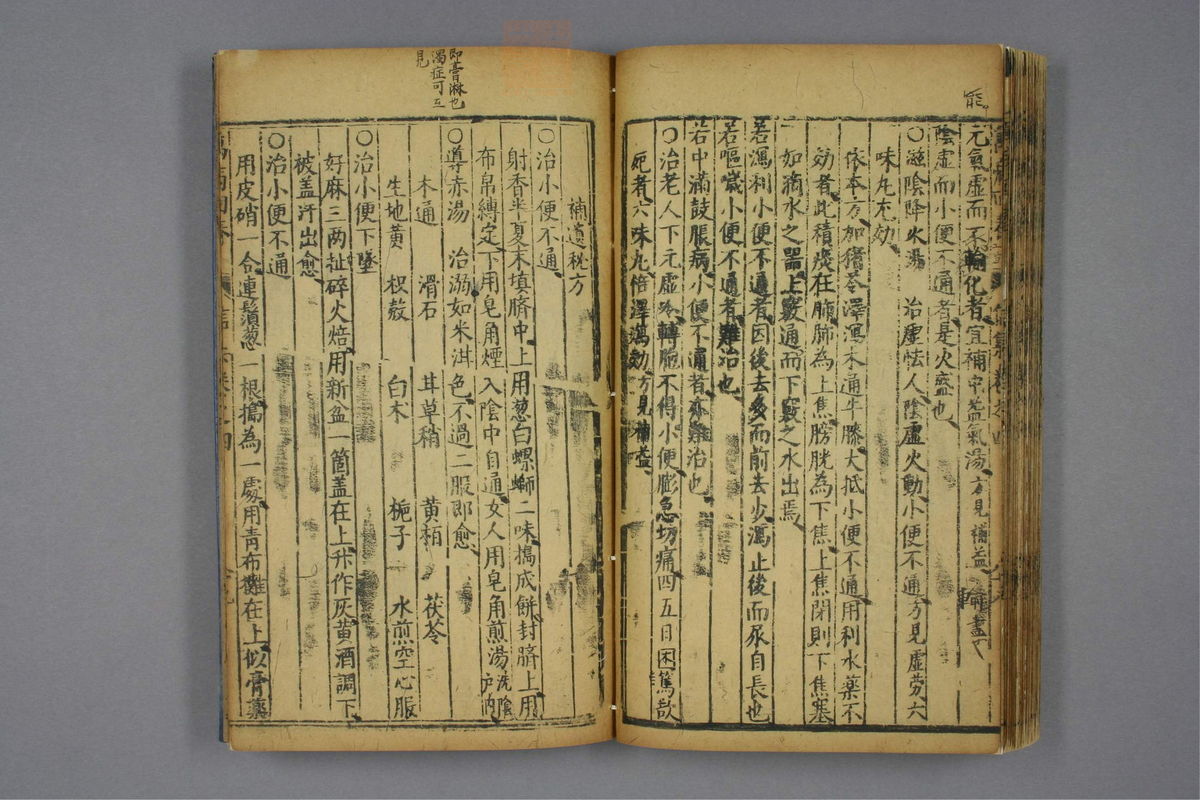 能
元氣虛而不輸化者宜補中益氣湯方見補益
陰虛而小便不通者是火盛也
〇滋陰降火湯 治虛怯人陰虛火動小便不通方見虛勞六
味丸尤効
依本方加猪苓澤瀉木通牛膝大抵小便不通用利水藥不
効者此積痰在肺肺為上焦膀胱為下焦上焦閉則下焦塞
如滴水之器上竅通而下竅之水出焉
若瀉利小便不通者因後去多而前去少瀉止後而尿自長也
若嘔噦小便不通者難治也
若中滿鼓脹病小便不通者亦難治也
〇治老人下元虛冷轉脬不得小便膨急切痛四五日困篤欲
死者六味丸倍澤瀉効方見補益
補遺秘方
〇治小便不通
射香半夏末填臍中上用葱白螺螄二味搗成餅封臍上用
布帛縛定下用皂角煙入陰中自通女人用皂角煎湯洗陰戶內
〇導赤湯 治溺如米泔色不過二服即愈
即膏淋也
濁症可互
見
木通 滑石 甘草稍 黃栢 茯苓
生地黃 枳殼 白木 梔子 水煎空心服
〇治小便下墜
好麻三两扯碎火焙用新盆一箇盖在上升作灰黃酒調下
被盖汗出愈
〇治小便不通
用皮硝一合連鬚葱一根搗為一處用青布攤在上似膏藥